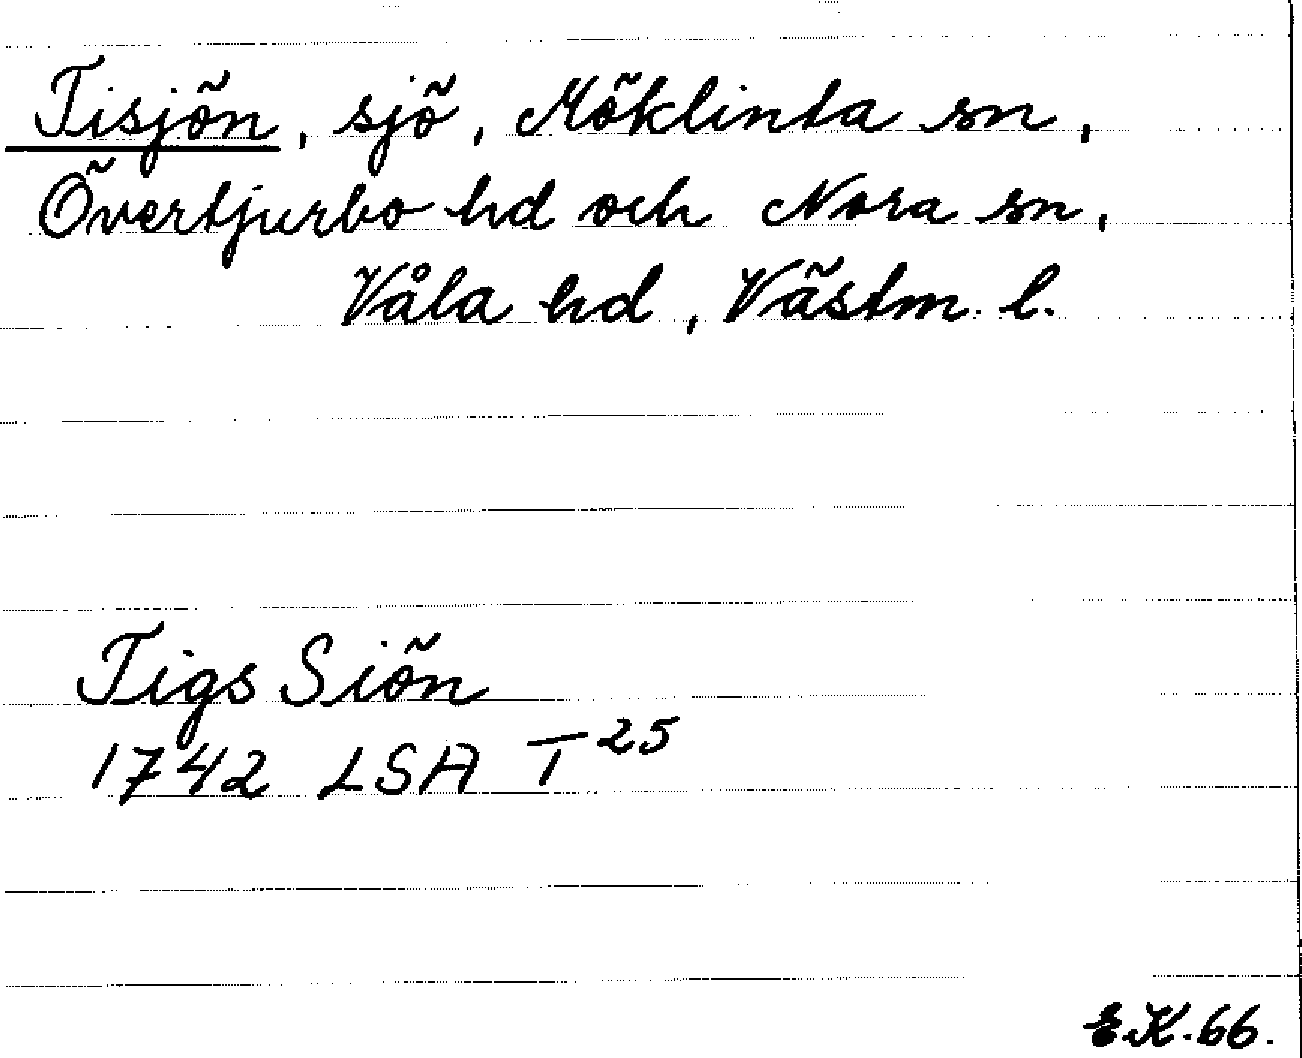 Tisjön, sjö, Möklinta sn,
Övertjurbo hd och Nora sn,
Våla hd, Västm. l.
Tigs Siön
1742 LSA T 25
E.K. 66.